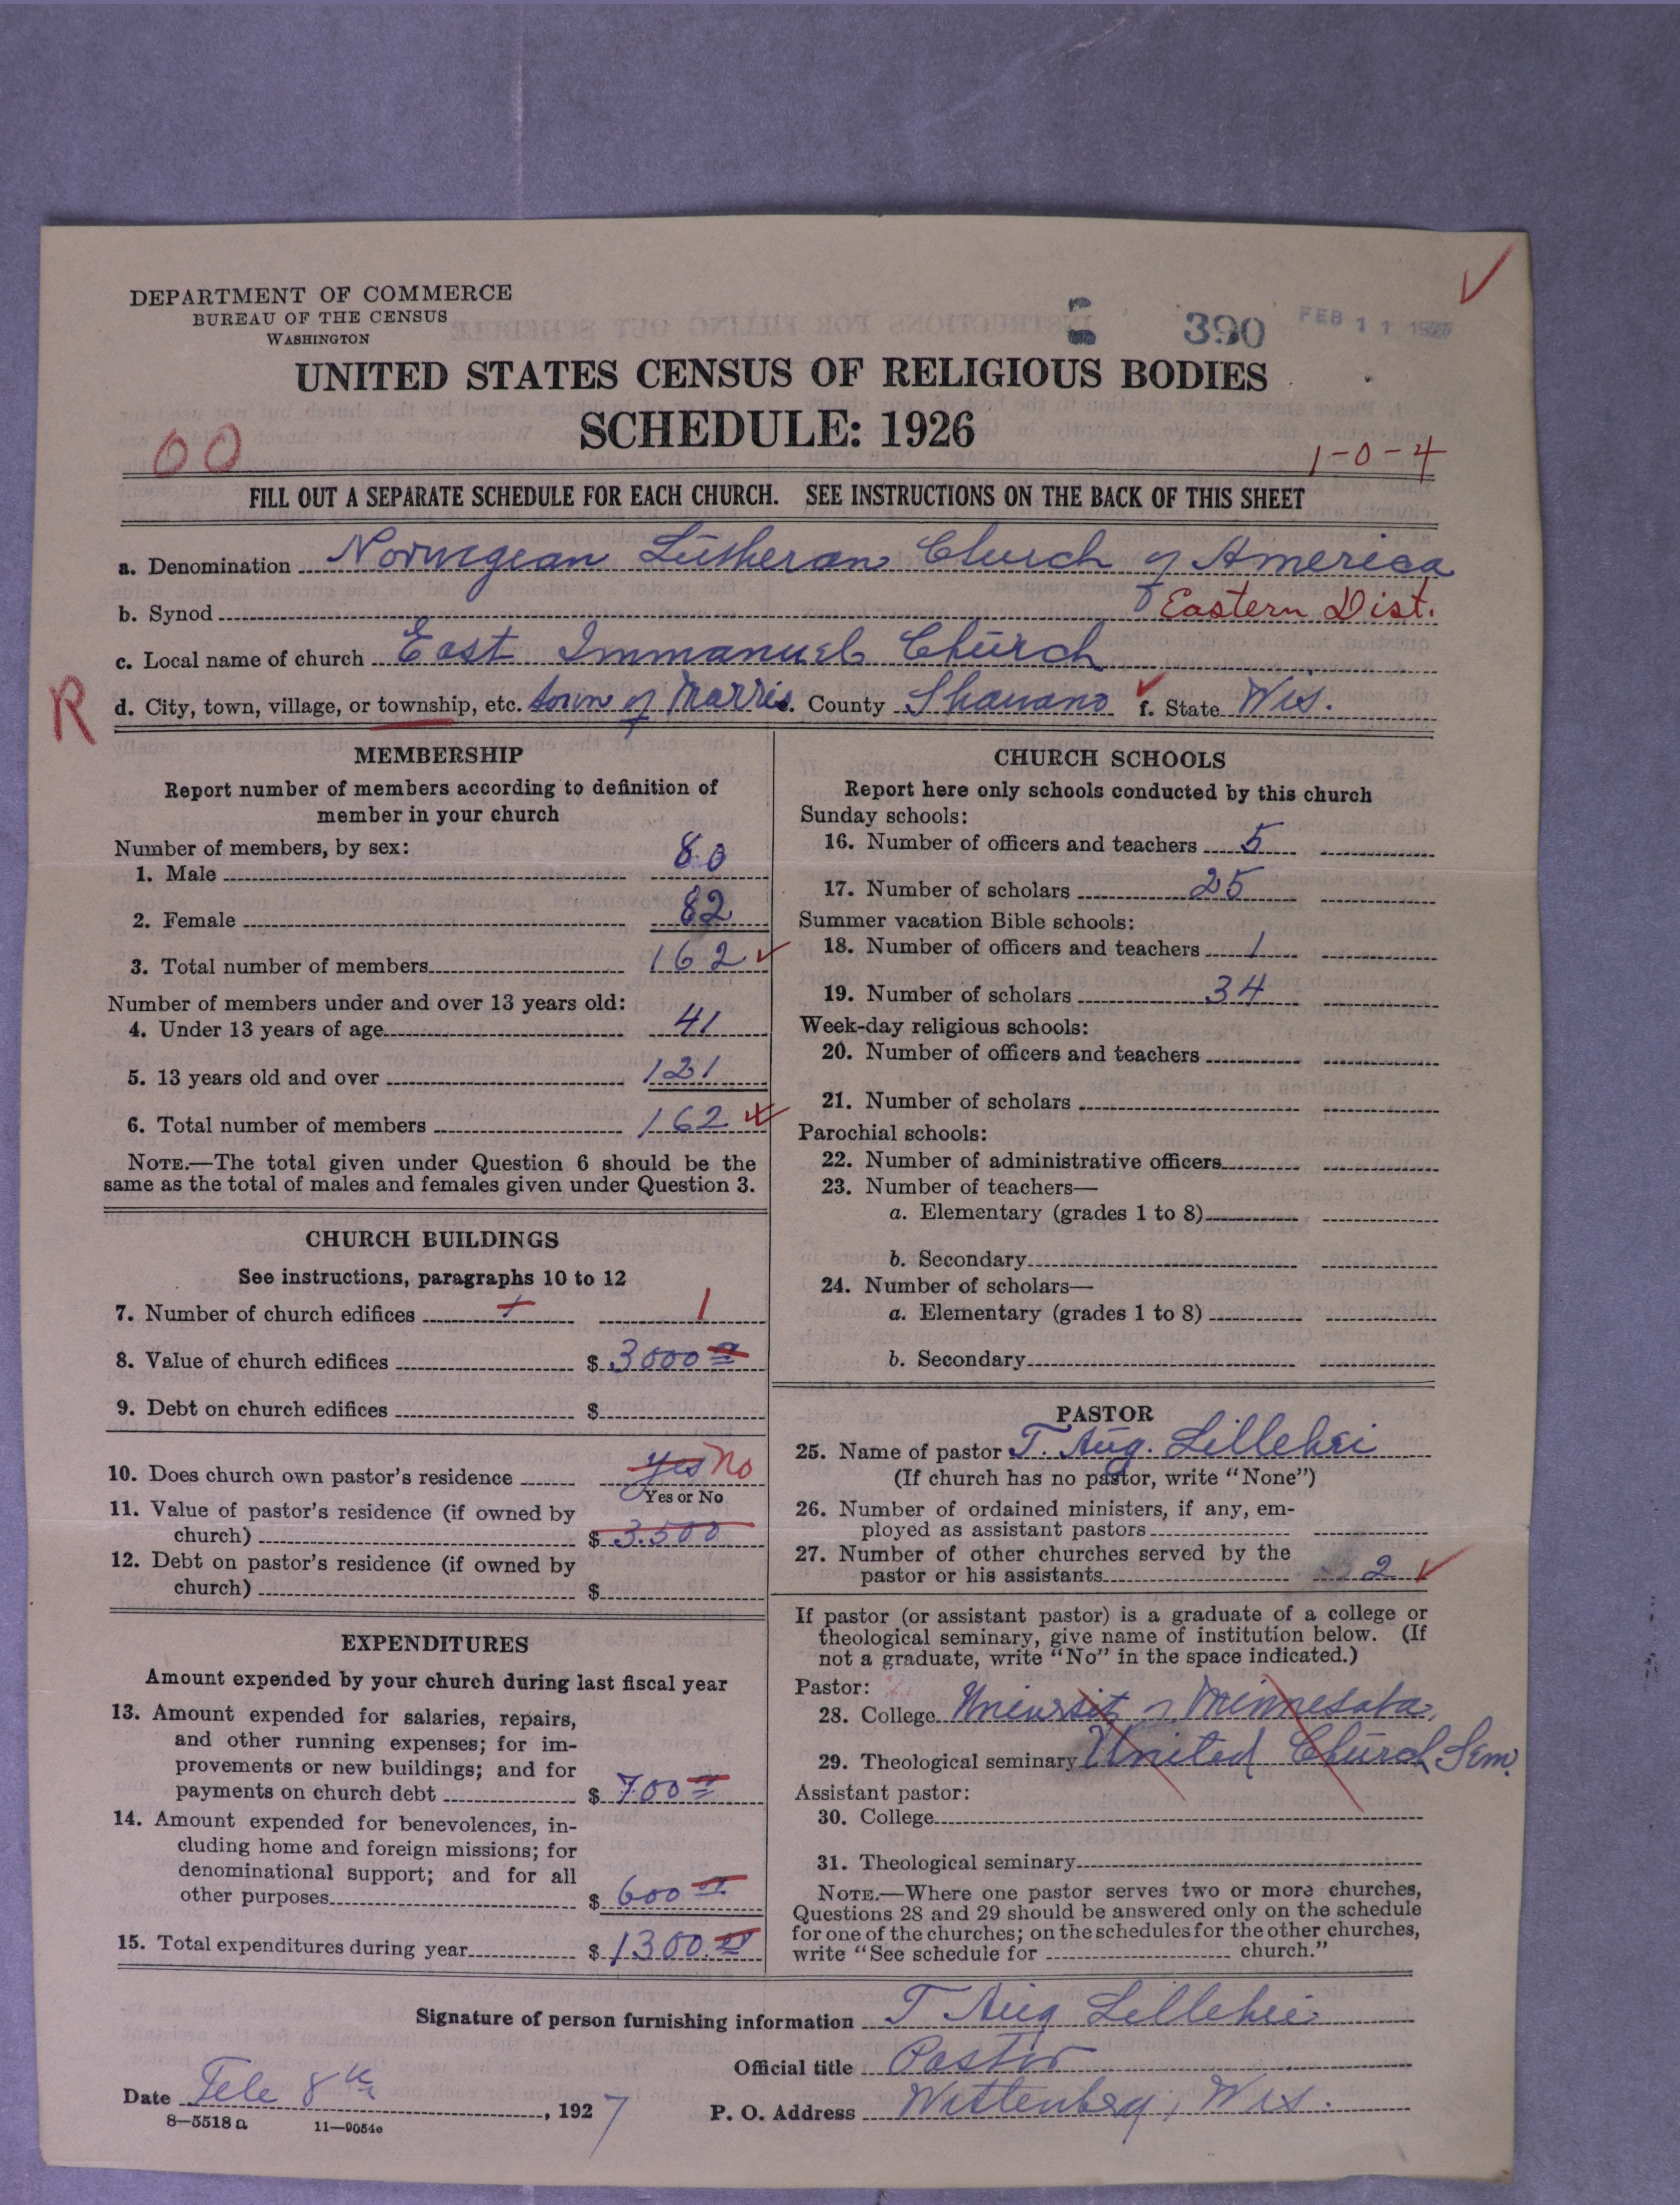 DEPARTMENT OF COMMERCE
BUREAU OF THE CENSUS
WASHINGTON
390 FEB 11 1927
UNITED STATES CENSUS OF RELIGIOUS BODIES
SCHEDULE: 1926
00 1-0-4
FILL OUT A SEPARATE SCHEDULE FOR EACH CHURCH. SEE INSTRUCTIONS ON THE BACK OF THIS SHEET
a. Denomination Norwegean Lutheran Church of America
b. Synod Eastern Dist.
c. Local name of church East Immanuel Church
R d. City, town, village, or township, etc. town of Morris. County Shawano f. State Wis.
MEMBERSHIP
Report number of members according to definition of
member in your church
Number of members, by sex:
1. Male 80
2. Female 82
3. Total number of members 162
Number of members under and over 13 years old:
4. Under 13 years of age 41
5. 13 years old and over 121
6. Total number of members 162
NOTE.—The total given under Question 6 should be the
same as the total of males and females given under Question 3.
CHURCH BUILDINGS
See instructions, paragraphs 10 to 12
7. Number of church edifices 1 1
8. Value of church edifices $ 3000 00
9. Debt on church edifices $
10. Does church own pastor's residence yes No
Yes or No
11. Value of pastor's residence (if owned by
church) $ 3.500
12. Debt on pastor's residence (if owned by
church) $
EXPENDITURES
Amount expended by your church during last fiscal year
13. Amount expended for salaries, repairs,
and other running expenses; for im-
provements or new buildings; and for
payments on church debt $ 700 00
14. Amount expended for benevolences, in-
cluding home and foreign missions; for
denominational support; and for all
other purposes $ 600 00
15. Total expenditures during year $ 1300.00
CHURCH SCHOOLS
Report here only schools conducted by this church
Sunday schools:
16. Number of officers and teachers 5
17. Number of scholars 25
Summer vacation Bible schools:
18. Number of officers and teachers 1
19. Number of scholars 34
Week-day religious schools:
20. Number of officers and teachers
21. Number of scholars
Parochial schools:
22. Number of administrative officers
23. Number of teachers—
a. Elementary (grades 1 to 8)
b. Secondary
24. Number of scholars—
a. Elementary (grades 1 to 8)
b. Secondary
PASTOR
25. Name of pastor T. Aug. Lillehei
(If church has no pastor, write "None")
26. Number of ordained ministers, if any, em-
ployed as assistant pastors
27. Number of other churches served by the
pastor or his assistants 2
If pastor (or assistant pastor) is a graduate of a college or
theological seminary, give name of institution below. (If
not a graduate, write "No" in the space indicated.)
Pastor:
28. College Universit of Minnesota,
29. Theological seminary United Church Sem.
Assistant pastor:
30. College
31. Theological seminary
NOTE.—Where one pastor serves two or more churches,
Questions 28 and 29 should be answered only on the schedule
for one of the churches; on the schedules for the other churches,
write "See schedule for church."
Signature of person furnishing information T Aug Lillehei
Official title Pastor
Date Feb 8th, 1927 P. O. Address Wittenberg, Wis.
8—5518a 11—9054e